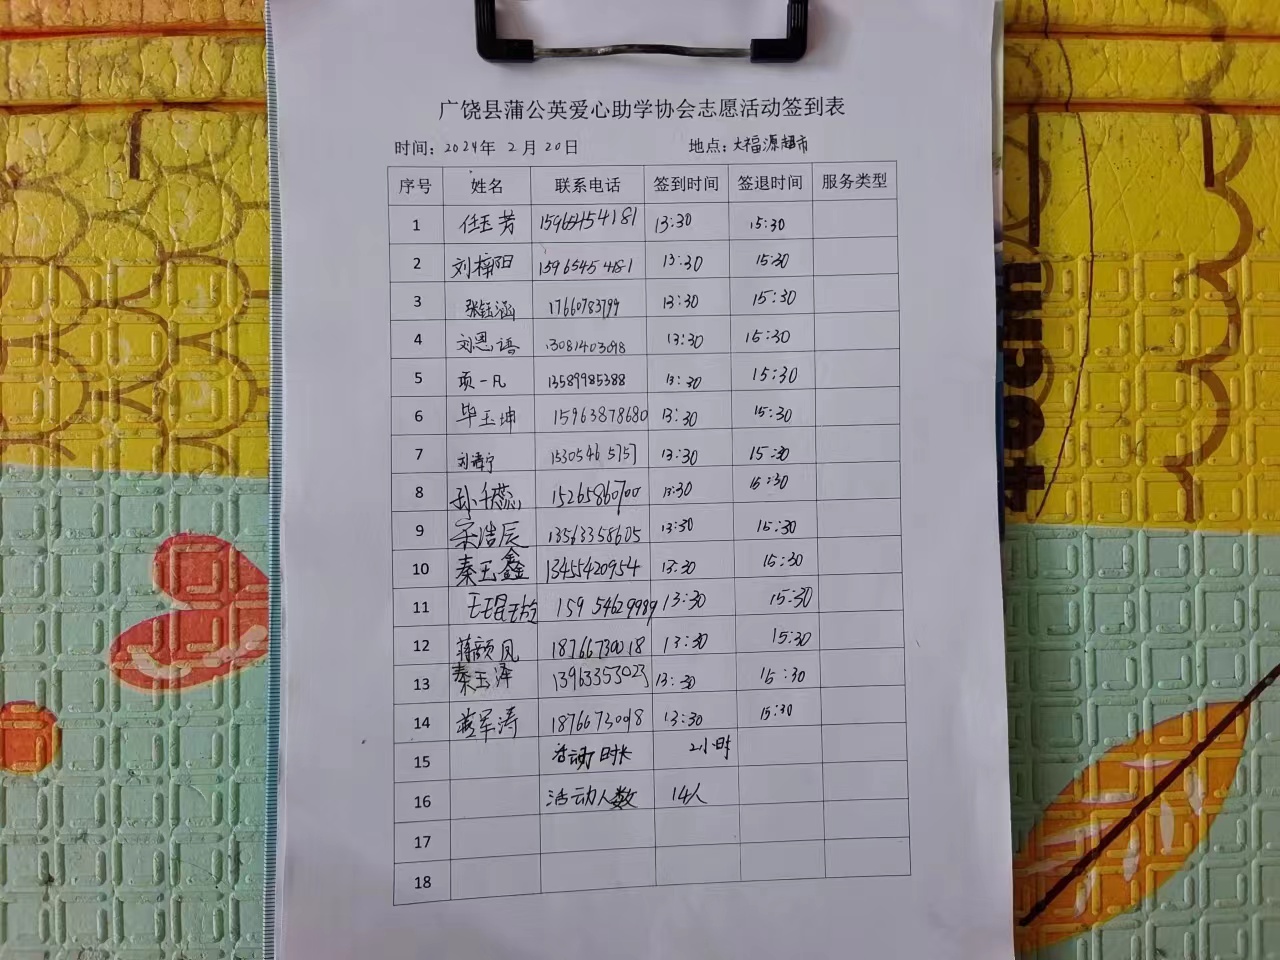 广饶县蒲公英爱心助学协会志愿活动签到表
时间：2024年 2月 20日 地点：大福源超市
序号 姓名 联系电话 签到时间 签退时间 服务类型
1 任玉芳 15965454181 13:30 15:30
2 刘梓阳 15965454181 13:30 15:30
3 张钰涵 17660783799 13:30 15:30
4 刘思语 13081403098 13:30 15:30
5 项一凡 13589985388 13:30 15:30
6 毕玉坤 15963878680 13:30 15:30
7 刘 宁 15305465757 13:30 15:30
8 孙千蕊 15265860700 13:30 15:30
9 宋浩辰 13563358605 13:30 15:30
10 秦玉鑫 13455420954 13:30 15:30
11 王琨玲 15954629989 13:30 15:30
12 蒋颜凤 18766730018 13:30 15:30
13 秦玉泽 13963353023 13:30 15:30
14 军涛 18766730018 13:30 15:30
15 活动时长 2小时
16 活动人数 14人
17
18